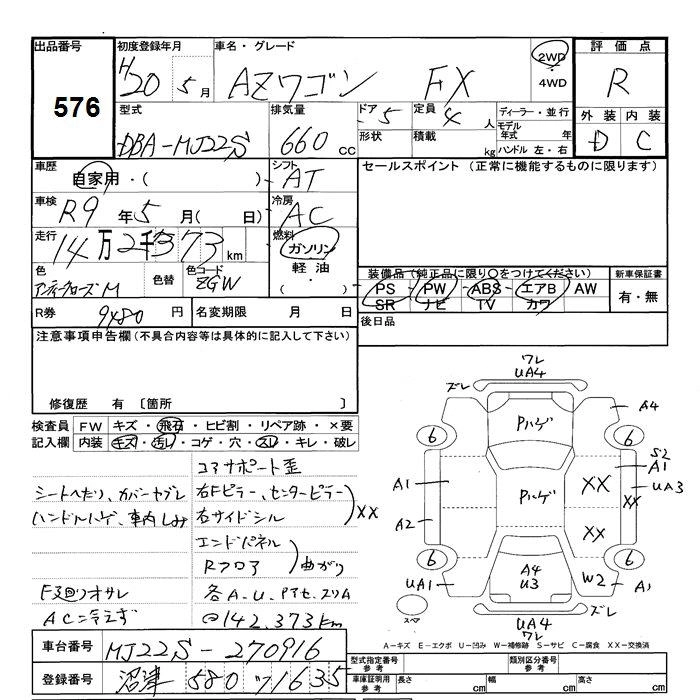 出品番号 初度登録年月 車名・グレード 2WD 評価点
576 H20 5月 AZワゴン FX 4WD R
型式 排気量 ドア 定員 ディーラー・並行 外装 内装
DBA-MJ22S 660cc 5 4人 モデル年式 年 D C
形状 積載 kg ハンドル 左・右
車歴 自家用・( ) シフト AT セールスポイント (正常に機能するものに限ります)
車検 R9年5月( 日) 冷房 AC
走行 14万2千373km 燃料 ガソリン
軽油・( )
色 色替 色コード ZGW
装備品(純正品に限り○をつけてください) 新車保証書
PS PW ABS エアB AW 有・無
SR ナビ TV カワ
R券 9480円 名変期限 月 日 後日品
注意事項申告欄(不具合内容等は具体的に記入して下さい)
修復歴 有 〔箇所 〕
検査員 FW キズ・飛石・ヒビ割・リペア跡・×要
記入欄 内装 キズ・汚レ・コゲ・穴・スレ・キレ・破レ
コアサポート歪
シートへたり、カバーヤブレ 右Fピラー、センターピラー
ハンドルハゲ、車内しみ 右サイドシル XX
エンドパネル
Rフロア 曲がり
F廻りオサレ 各A.U.
AC冷えず @142,373km
ワレ
UA4
ズレ
Pハゲ A4
6 6
S2
A1 A1
UA3
Pハゲ XX XX
A2 XX
6 6
A4
U3
UA1 W2 A1
ズレ
スペア
UA4
ワレ
A-キズ E-エクボ U-凹み W-補修跡 S-サビ C-腐食 XX-交換済
車台番号 MJ22S-270916
型式指定番号 参考 類別区分番号 参考
登録番号 沼津 580 ワ1635
車庫証明用 参考 長さ cm 幅 cm 高さ cm